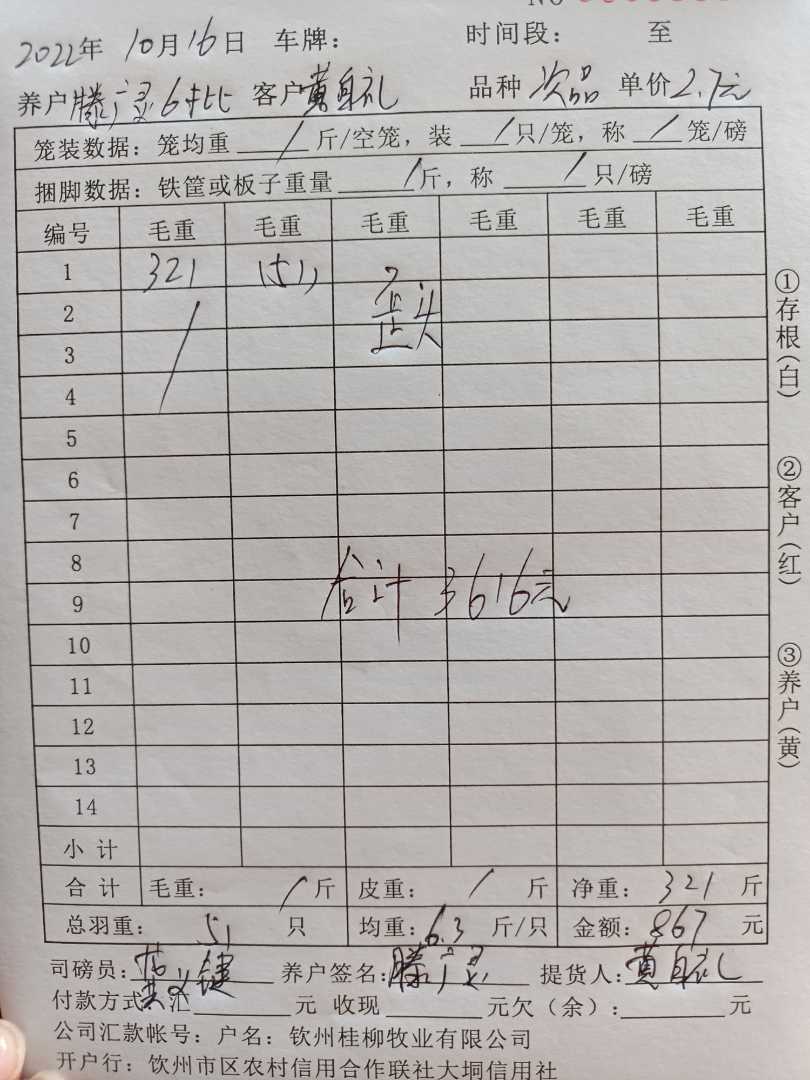 NO
2022年 10月16日 车牌: 时间段: 至
养户 滕广灵6批 客户 黄自礼 品种 次品 单价 2.7元
笼装数据: 笼均重 / 斤/空笼, 装 / 只/笼, 称 / 笼/磅
捆脚数据: 铁筐或板子重量 / 斤, 称 / 只/磅
编号 毛重 毛重 毛重 毛重 毛重 毛重
1 321 (51)
2 歪头
3
4
5
6
7
8
9 合计 3616元
10
11
12
13
14
小计
合计 毛重: / 斤 皮重: / 斤 净重: 321 斤
总羽重: 51 只 均重: 6.3 斤/只 金额: 867 元
司磅员: 键 养户签名: 滕广灵 提货人: 黄自礼
付款方式: 汇 元 收现 元欠(余): 元
公司汇款帐号: 户名: 钦州桂柳牧业有限公司
开户行: 钦州市区农村信用合作联社大垌信用社
①存根(白)
②客户(红)
③养户(黄)